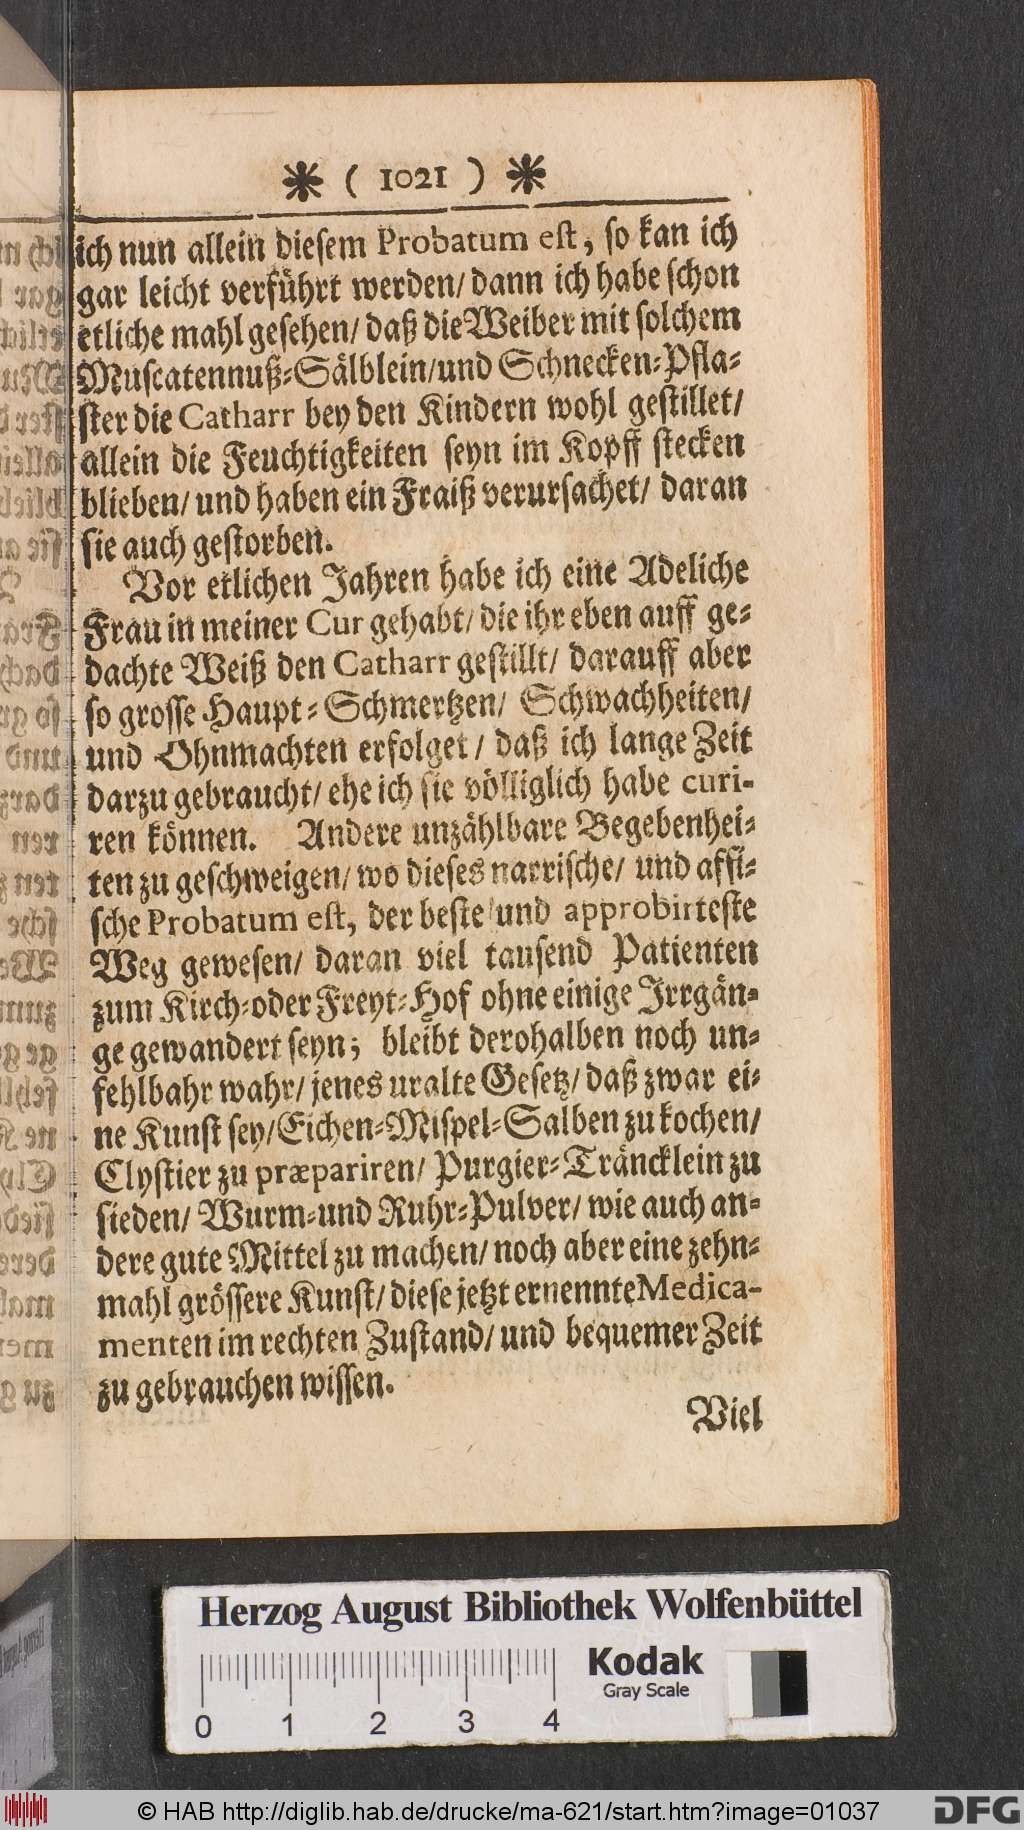 ❋ ( 1021 ) ❋
ich nun allein diesem Probatum est, so kan ich
gar leicht verführt werden/ dann ich habe schon
etliche mahl gesehen/ daß die Weiber mit solchem
Muscatennuß-Sälblein/und Schnecken-Pfla-
ster die Catharr bey den Kindern wohl gestillet/
allein die Feuchtigkeiten seyn im Kopff stecken
blieben/ und haben ein Fraiß verursachet/ daran
sie auch gestorben.
Vor etlichen Jahren habe ich eine Adeliche
Frau in meiner Cur gehabt/ die ihr eben auff ge-
dachte Weiß den Catharr gestillt/ darauff aber
so grosse Haupt-Schmertzen/ Schwachheiten/
und Ohnmachten erfolget/ daß ich lange Zeit
darzu gebraucht/ ehe ich sie völliglich habe curi-
ren können. Andere unzählbare Begebenhei-
ten zu geschweigen/ wo dieses narrische/ und affi-
sche Probatum est, der beste und approbirteste
Weg gewesen/ daran viel tausend Patienten
zum Kirch-oder Freyt-Hof ohne einige Irrgän-
ge gewandert seyn; bleibt derohalben noch un-
fehlbahr wahr/ jenes uralte Gesetz/ daß zwar ei-
ne Kunst sey/Eichen-Mispel-Salben zu kochen/
Clystier zu præpariren/ Purgier-Träncklein zu
sieden/ Wurm-und Ruhr-Pulver/ wie auch an-
dere gute Mittel zu machen/ noch aber eine zehn-
mahl grössere Kunst/ diese jetzt ernennte Medica-
menten im rechten Zustand/ und bequemer Zeit
zu gebrauchen wissen.
Viel
Herzog August Bibliothek Wolfenbüttel
Kodak
Gray Scale
0 1 2 3 4
© HAB http://diglib.hab.de/drucke/ma-621/start.htm?image=01037
DFG